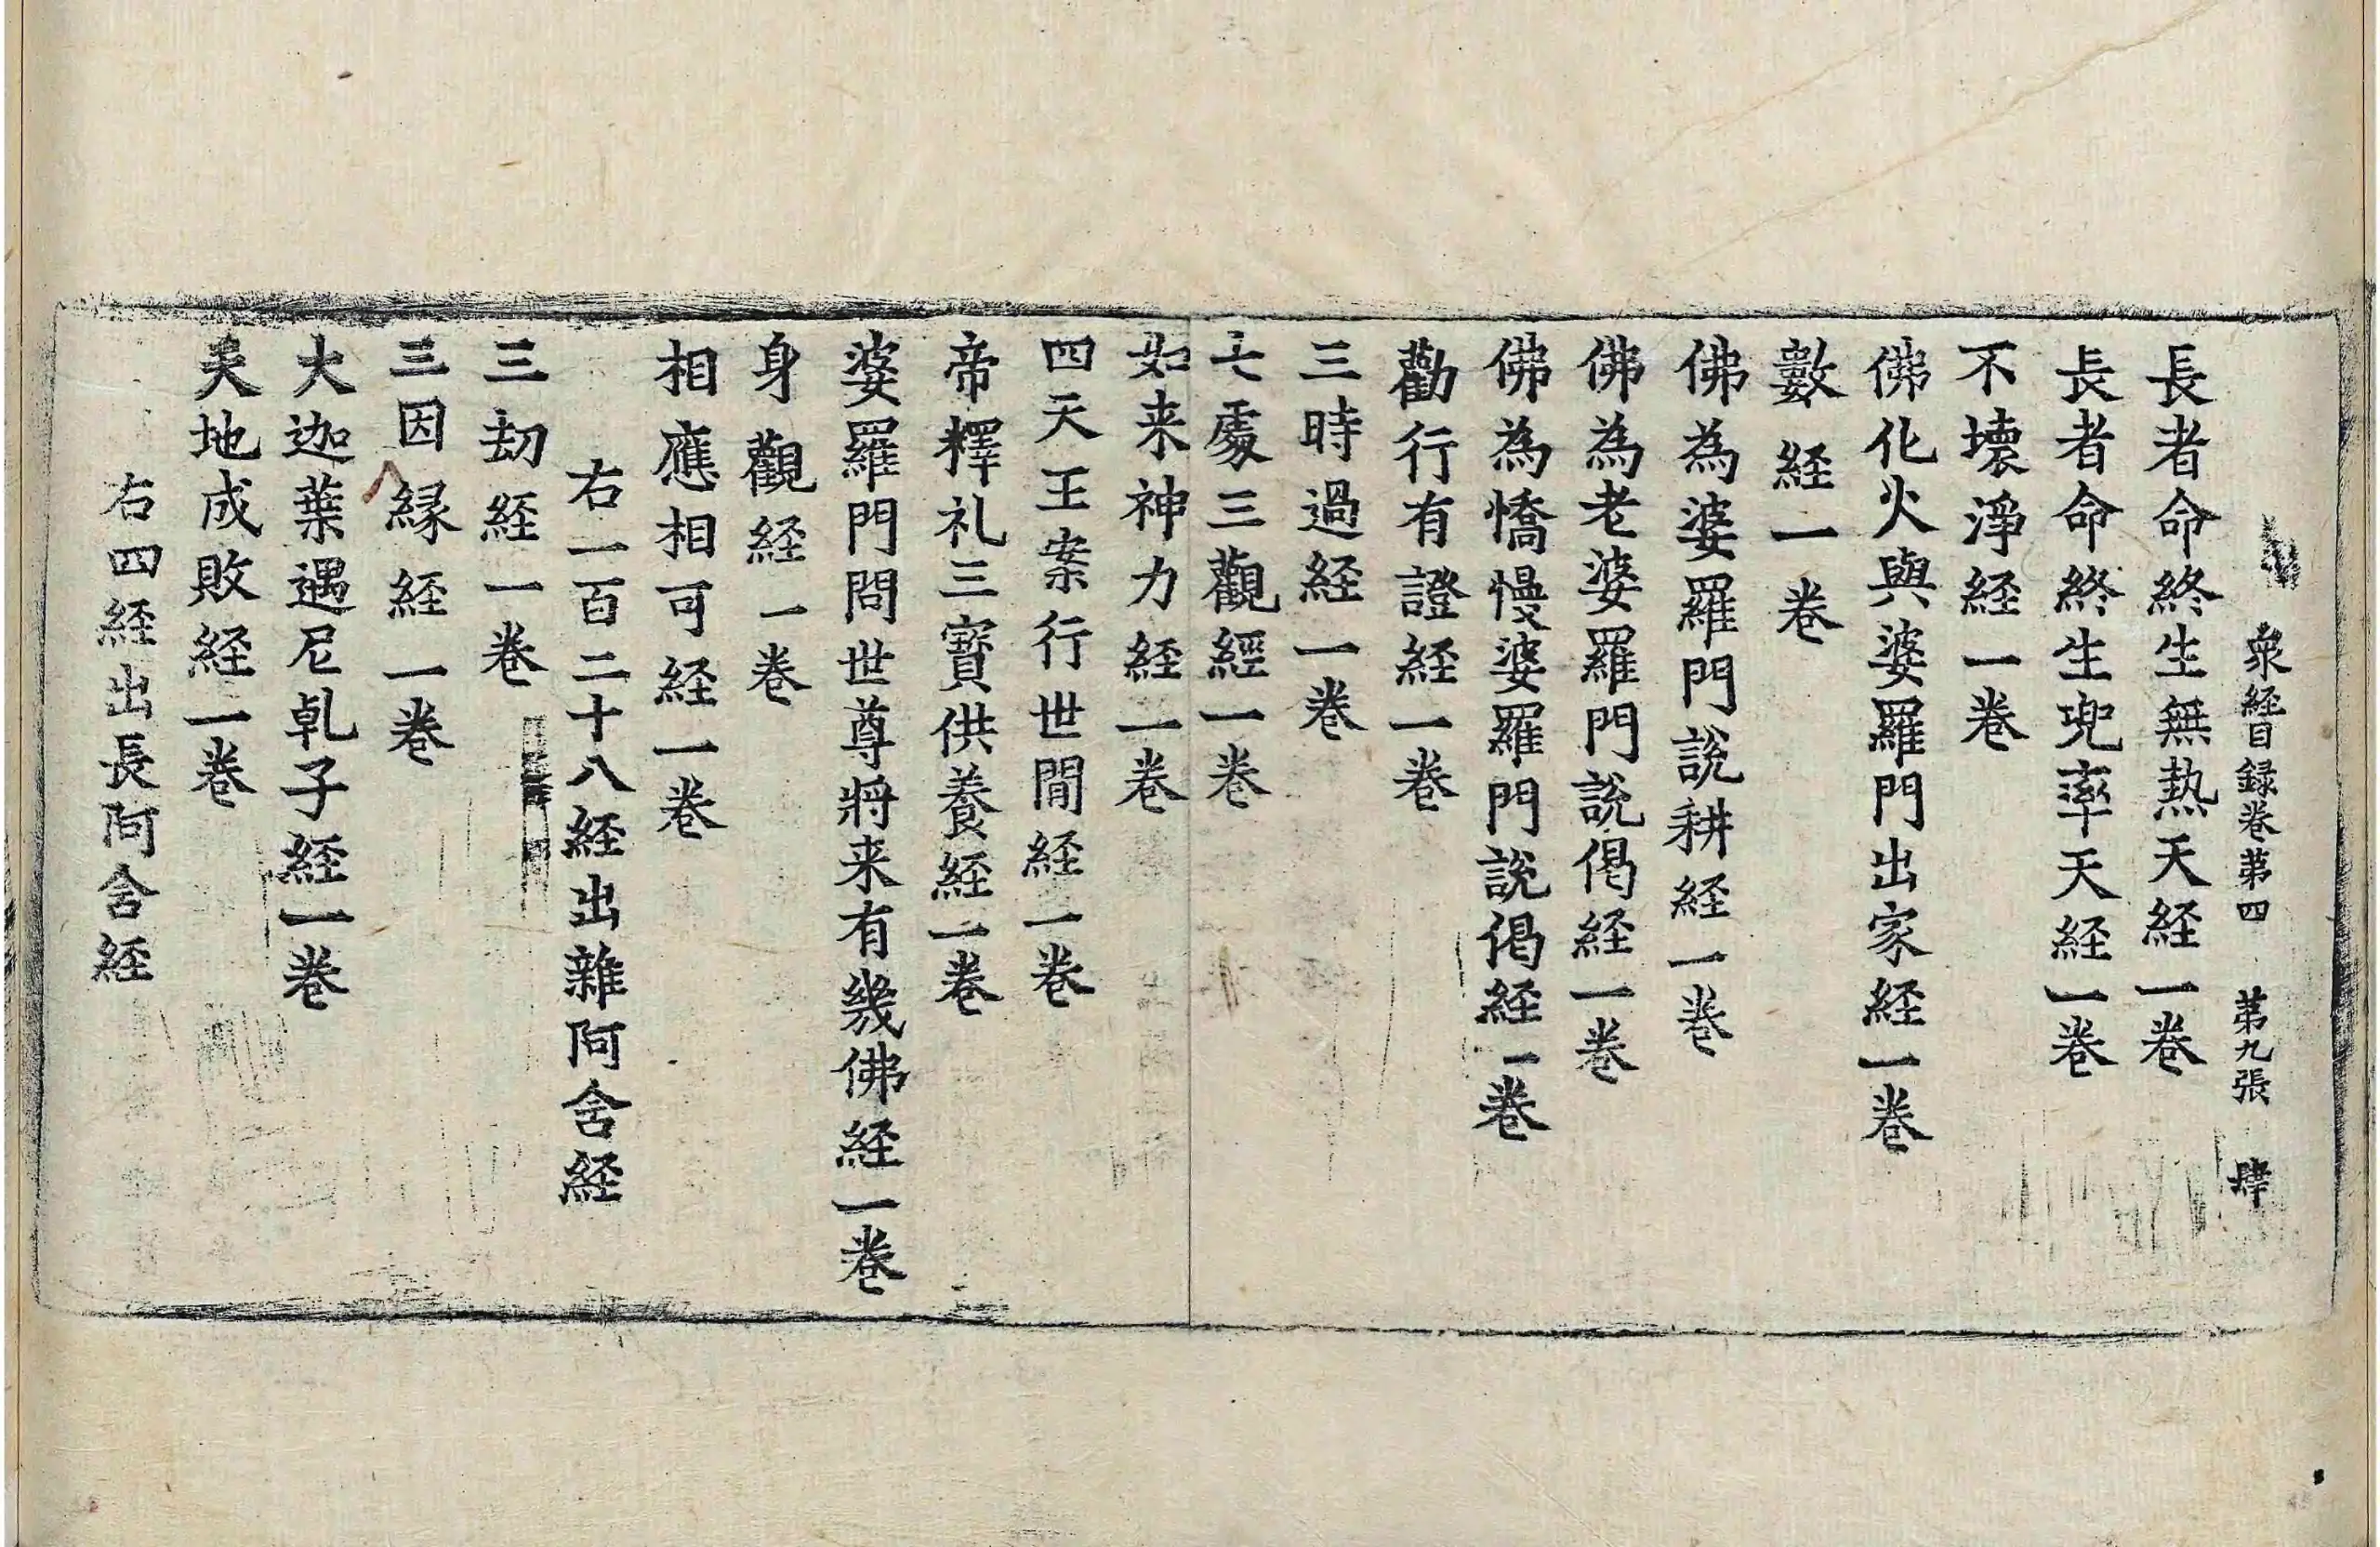 衆経目録巻第四 第九張 肆
長者命終生無熱天経一巻
長者命終生兜率天経一巻
不壊淨経一巻
佛化火與婆羅門出家経一巻
數経一巻
佛為婆羅門說耕経一巻
佛為老婆羅門說偈経一巻
佛為憍慢婆羅門說偈経一巻
勸行有證経一巻
三時過経一巻
七處三觀經一巻
如来神力経一巻
四天王案行世間経一巻
帝釋礼三寳供養経一巻
婆羅門問世尊将来有幾佛経一巻
身觀経一巻
相應相可経一巻
右一百二十八経出雜阿含経
三劫経一巻
三因縁経一巻
大迦葉遇尼乹子経一巻
天地成敗経一巻
右四経出長阿含経